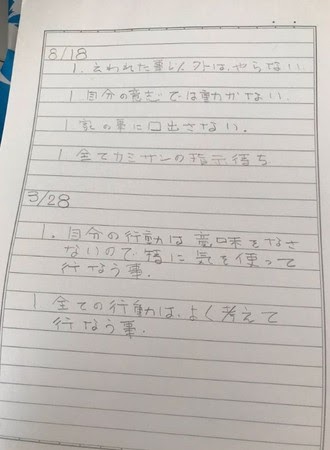 8/18
1. 云われた事以外は、やらない
1 自分の意志では動かない
1 家の事に口出さない.
1 全てカミサンの指示待ち
3/28
1. 自分の行動は意味をなさ
ないので 特に気を使って
行なう事.
1 全ての行動は、よく考えて
行なう事.